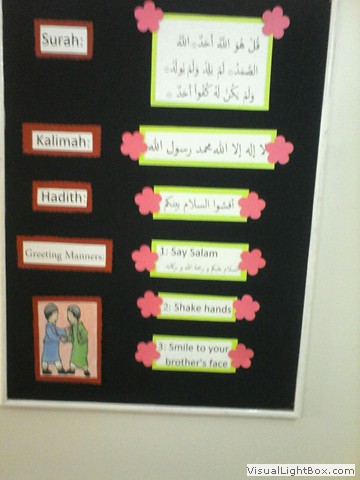 Surah:
قُلْ هُوَ اللَّهُ أَحَدٌ ۞ اللَّهُ
الصَّمَدُ ۞ لَمْ يَلِدْ وَلَمْ يُولَدْ ۞
وَلَمْ يَكُنْ لَهُ كُفُوًا أَحَدٌ ۞
Kalimah:
لا إله إلا الله محمد رسول الله
Hadith:
أفشوا السلام بينكم
Greeting Manners:
1: Say Salam
السلام عليكم و رحمة الله و بركاته
2: Shake hands
3: Smile to your
brother's face
VisualLightBox.com